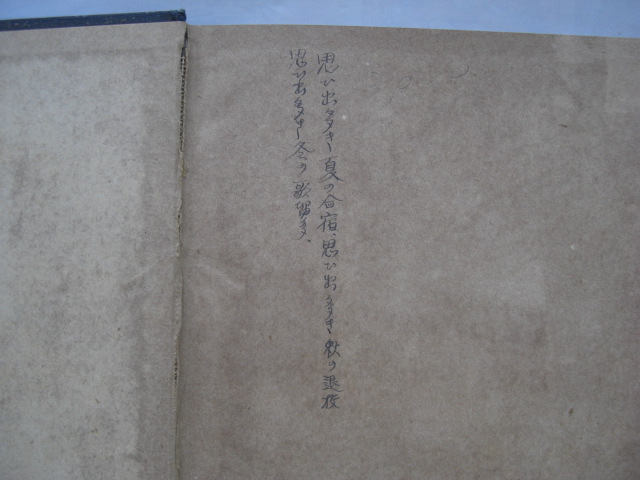 思ひ出多き夏の合宿、思ひ出多き秋の退校
思ひ出多き冬の歌留多、